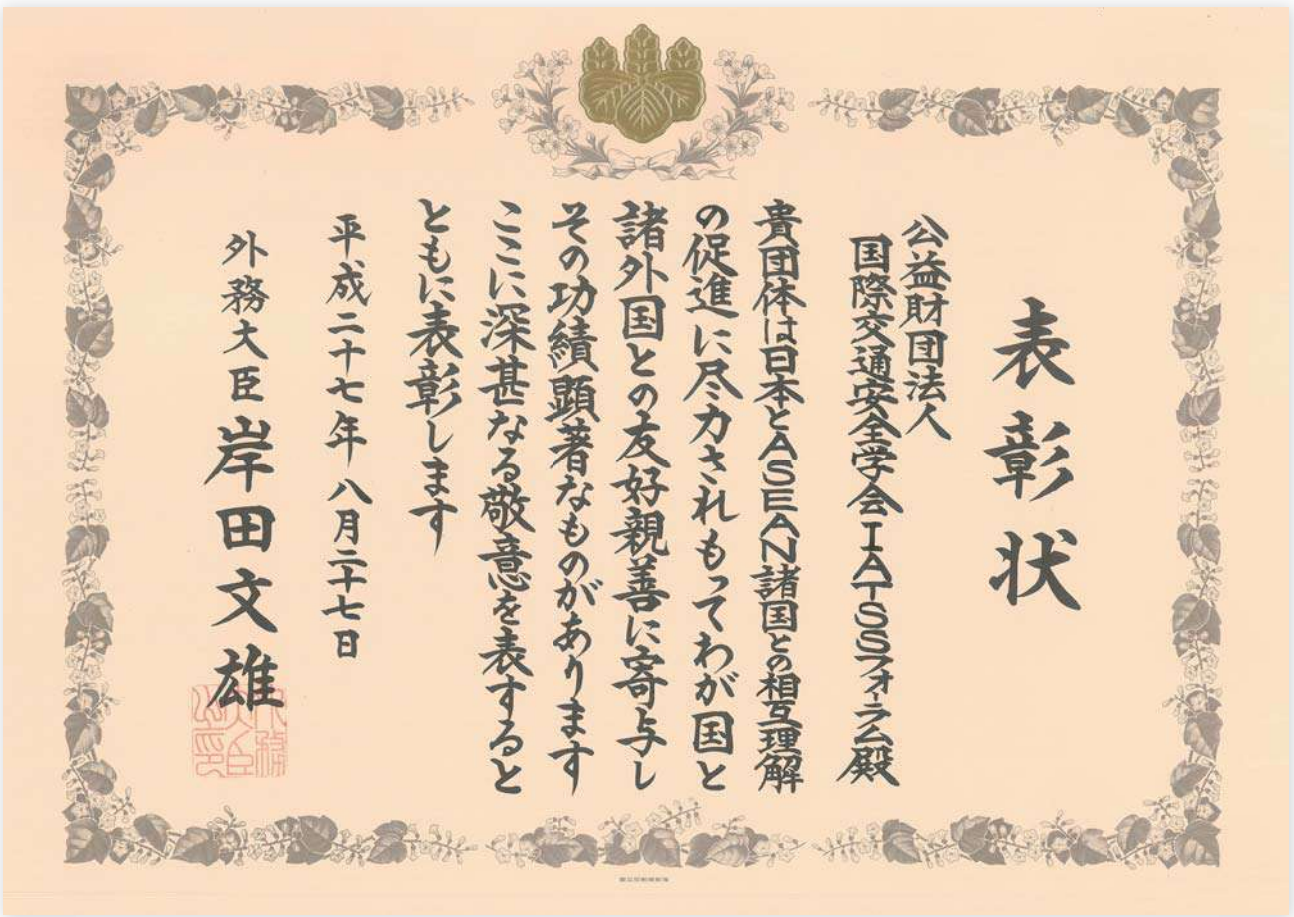 表彰状
公益財団法人
国際交通安全学会IATSSフォーラム殿
貴団体は日本とASEAN諸国との相互理解
の促進に尽力されもってわが国と
諸外国との友好親善に寄与し
その功績顕著なものがあります
ここに深甚なる敬意を表すると
ともに表彰します
平成二十七年八月二十七日
外務大臣 岸田文雄
外務大臣之印